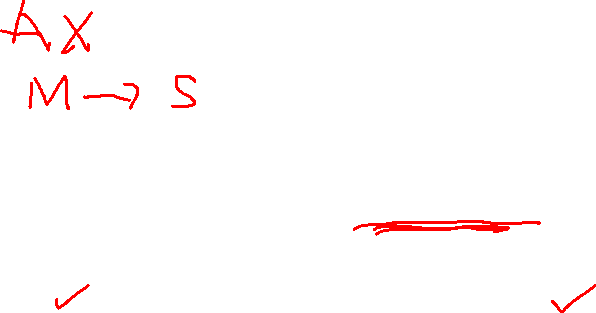 AX
M → S
✓ ✓